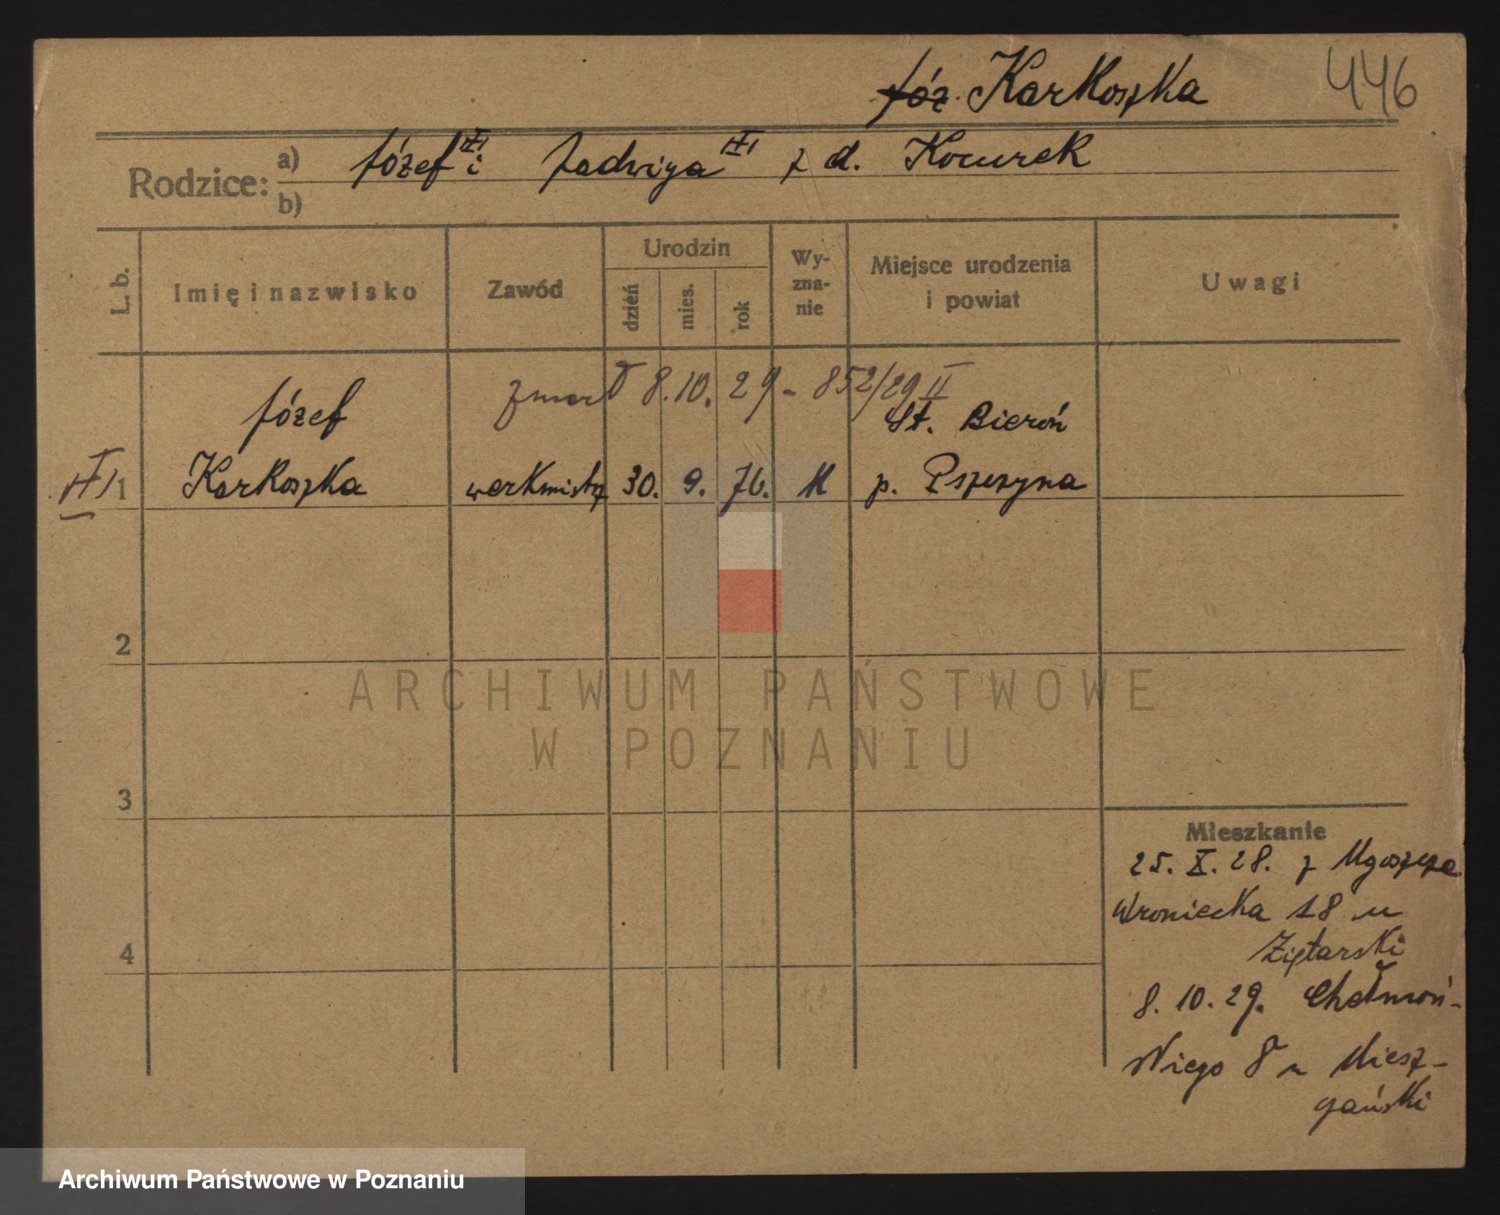 Józ. Karkoszka 446
Rodzice: a) Józef i Jadwiga z d. Kocurek
b)
L. b. Imię i nazwisko Zawód Urodzin dzień mies. rok Wyznanie Miejsce urodzenia i powiat Uwagi
zmarł 8.10.29 - 852/29 II
Józef St. Bieruń
1 Karkoszka werkmistrz 30. 9. 76. p. Pszczyna
2
3
4
Mieszkanie
25. X. 28. z
Wroniecka 18 u
Ziętarski
8. 10. 29. Chełmoń-
skiego 8 u
ARCHIWUM PAŃSTWOWE
W POZNANIU
Archiwum Państwowe w Poznaniu